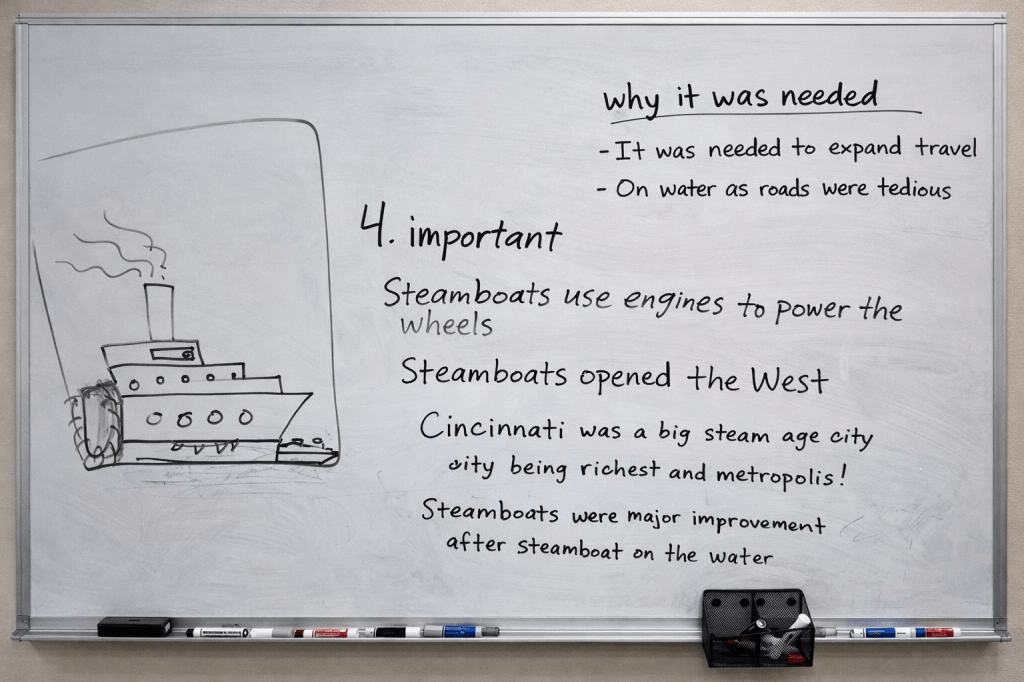 why it was needed
- It was needed to expand travel
- On water as roads were tedious
4. important
Steamboats use engines to power the
wheels
Steamboats opened the West
Cincinnati was a big steam age city
city being richest and metropolis!
Steamboats were major improvement
after steamboat on the water